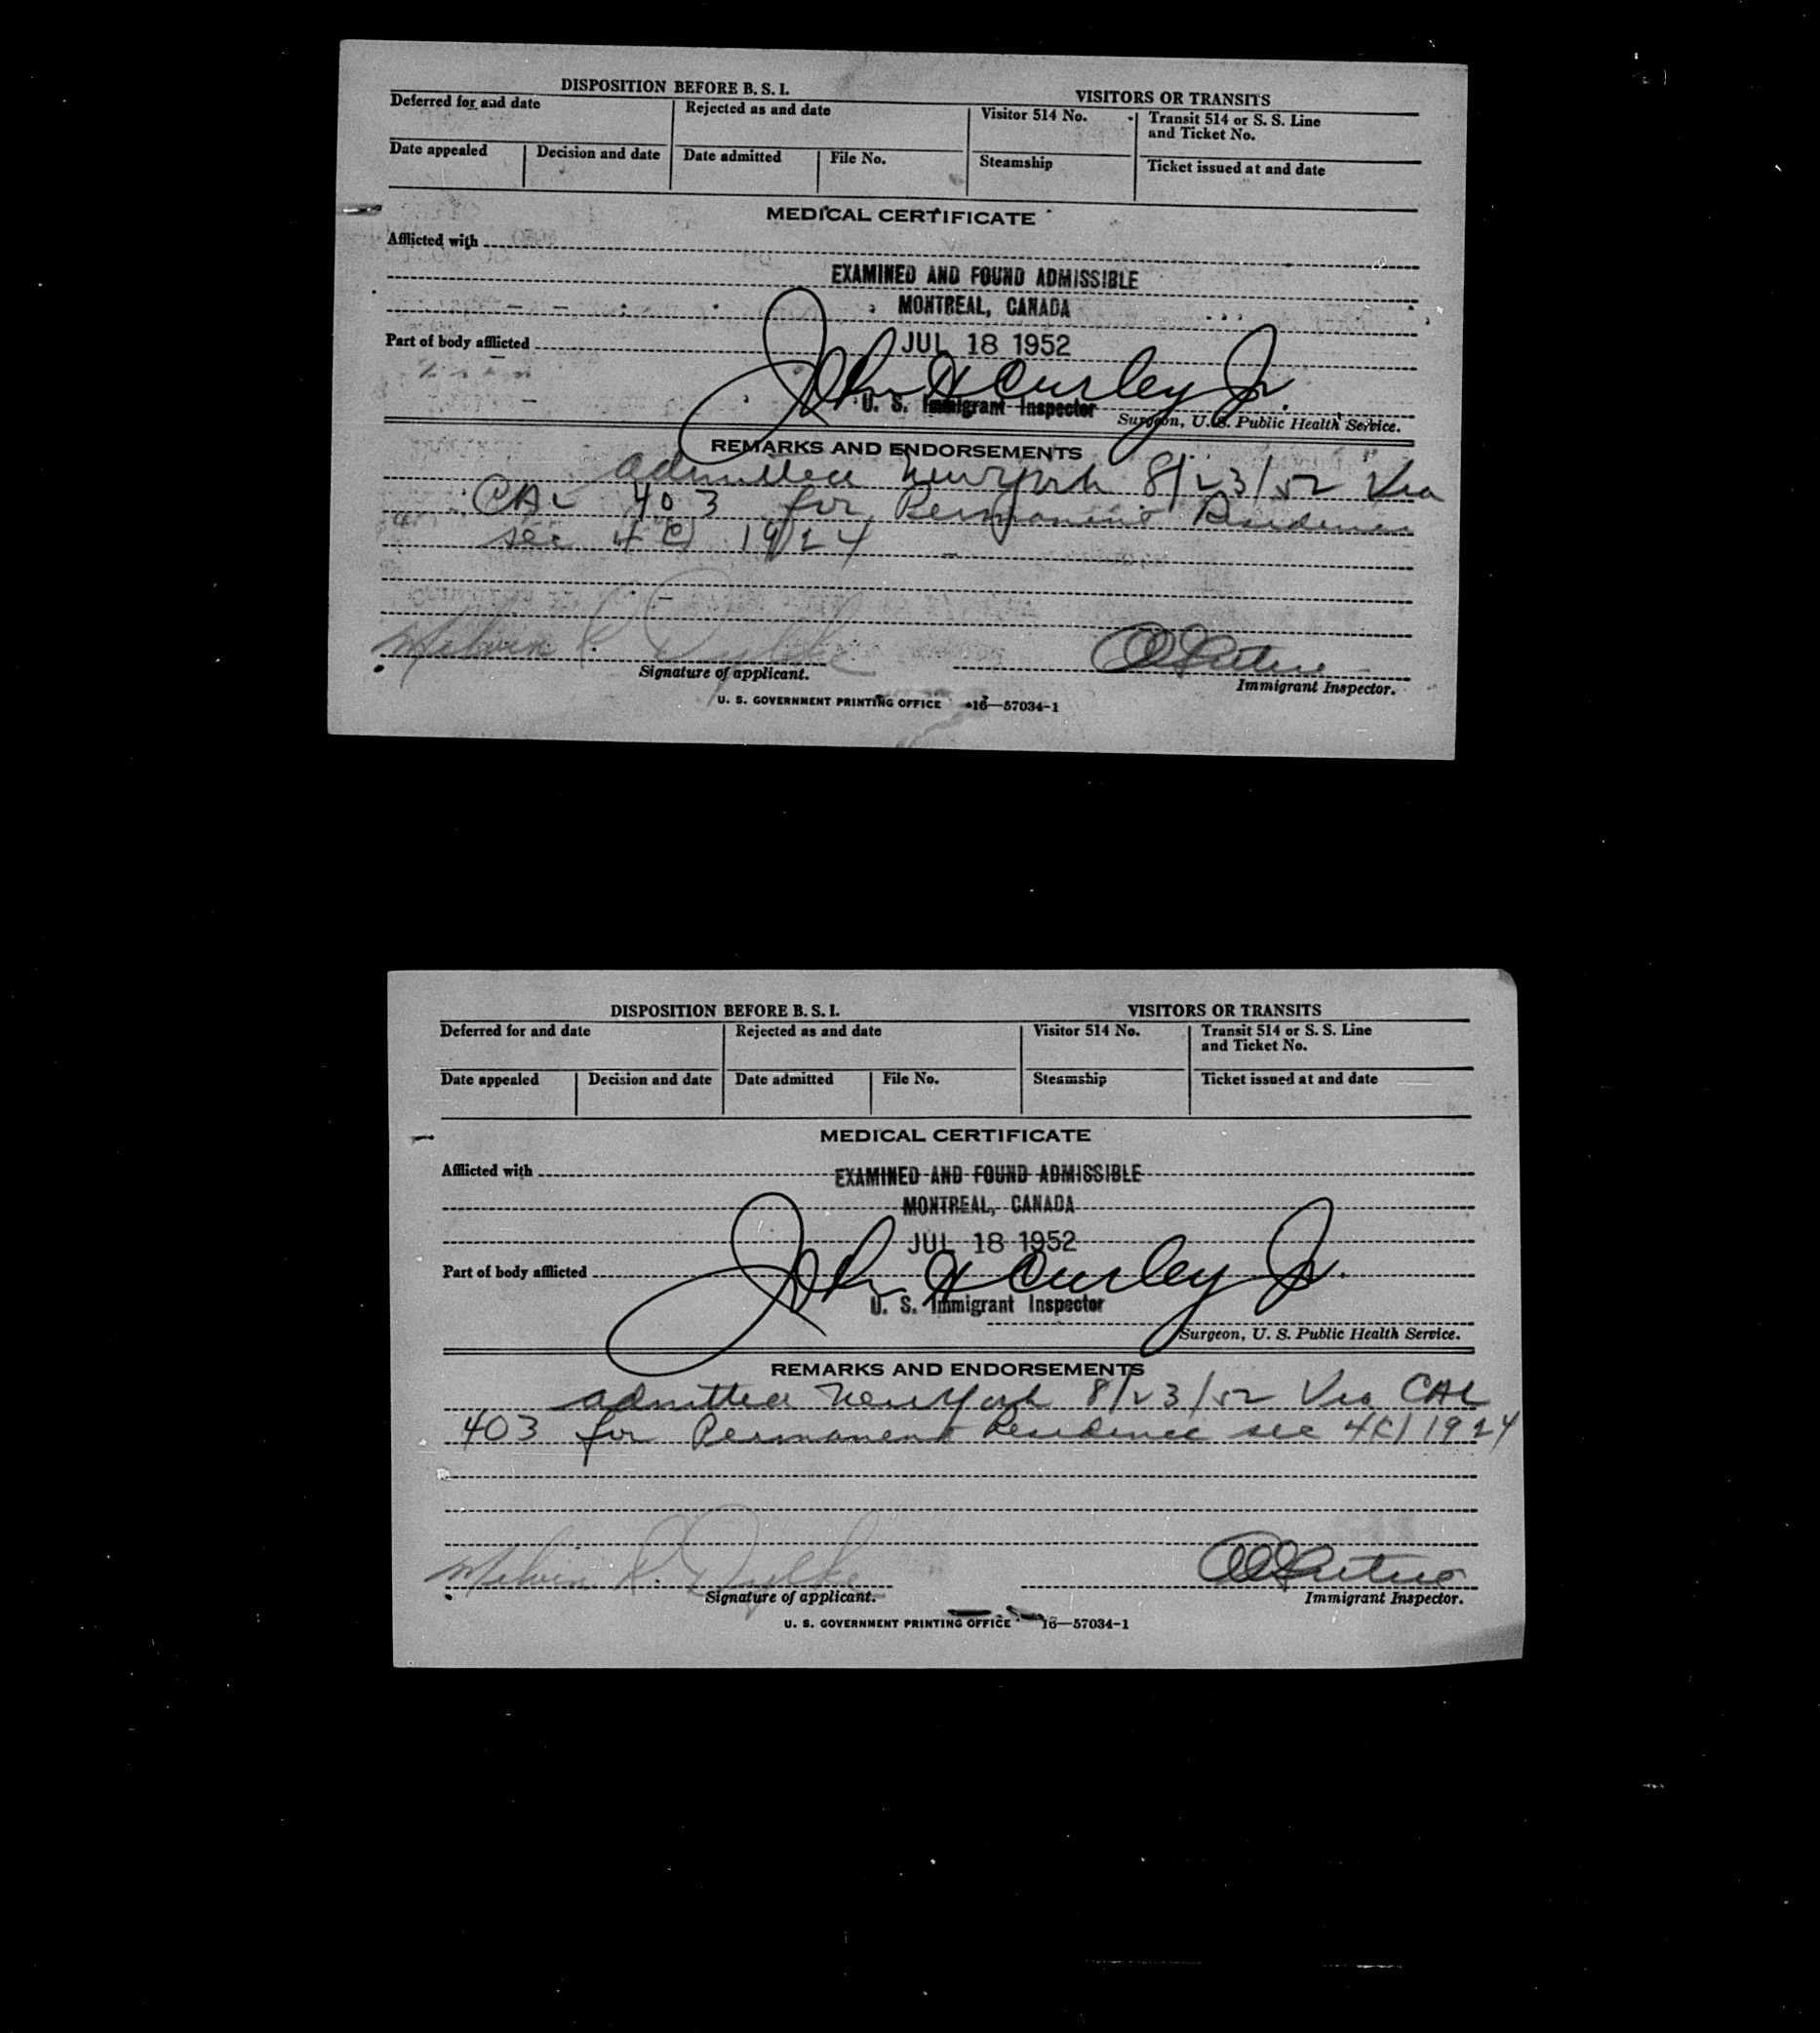 DISPOSITION BEFORE B. S. I.
VISITORS OR TRANSITS
Deferred for and date
Rejected as and date
Visitor 514 No.
Transit 514 or S. S. Line
and Ticket No.
Date appealed
Decision and date
Date admitted
File No.
Steamship
Ticket issued at and date
MEDICAL CERTIFICATE
Afflicted with
EXAMINED AND FOUND ADMISSIBLE
MONTREAL, CANADA
Part of body afflicted
JUL 18 1952
John H Curley Jr.
U. S. Immigrant Inspector
Surgeon, U. S. Public Health Service.
REMARKS AND ENDORSEMENTS
admitted New York 8/23/52 Via
CAL 403 for Permanent Residence
sec 4 C) 1924
Melvin
Signature of applicant.
Immigrant Inspector.
U. S. GOVERNMENT PRINTING OFFICE 16—57034-1
DISPOSITION BEFORE B. S. I.
VISITORS OR TRANSITS
Deferred for and date
Rejected as and date
Visitor 514 No.
Transit 514 or S. S. Line
and Ticket No.
Date appealed
Decision and date
Date admitted
File No.
Steamship
Ticket issued at and date
MEDICAL CERTIFICATE
Afflicted with
EXAMINED AND FOUND ADMISSIBLE
MONTREAL, CANADA
JUL 18 1952
Part of body afflicted
John H Curley Jr.
U. S. Immigrant Inspector
Surgeon, U. S. Public Health Service.
REMARKS AND ENDORSEMENTS
admitted New York 8/23/52 Via CAL
403 for Permanent Residence sec 4C) 1924
Melvin R. Dylke
Signature of applicant.
Immigrant Inspector.
U. S. GOVERNMENT PRINTING OFFICE 16—57034-1